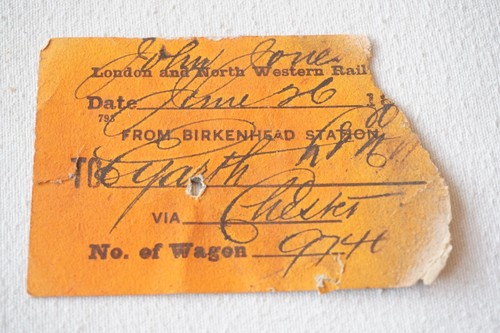 John Jone
London and North Western Rail
Date June 26 18
793
FROM BIRKENHEAD STATION
TO Eyarth
VIA Chester
No. of Wagon 974